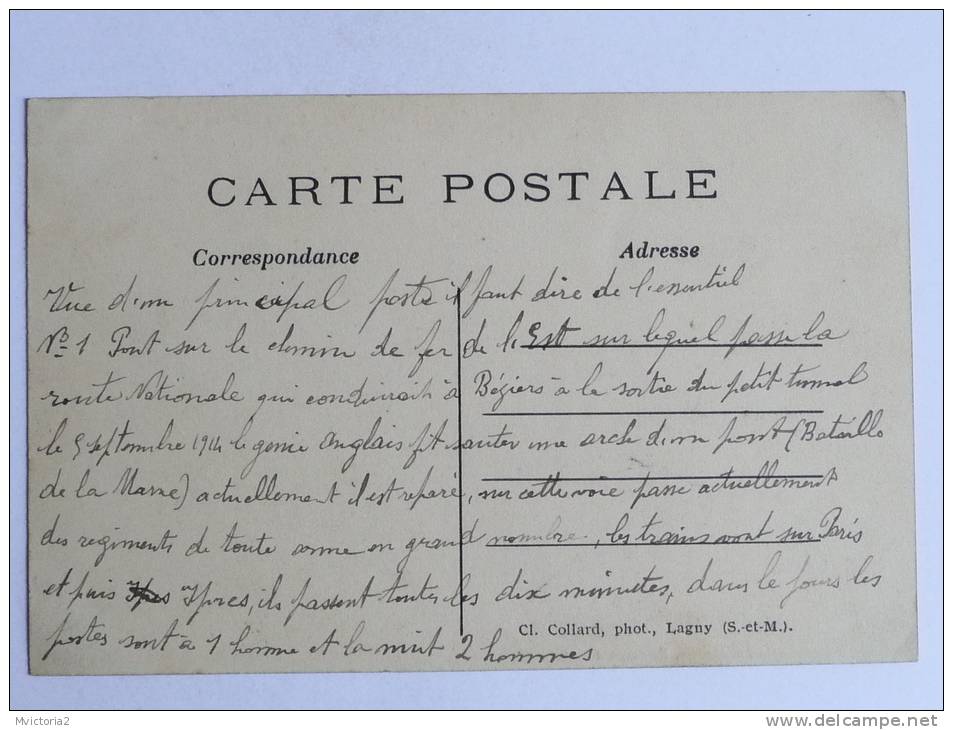 CARTE POSTALE
Correspondance
Adresse
Vue d'un principal poste il faut dire de l'essentiel
No 1 Pont sur le chemin de fer de l'Est sur lequel passe la
route Nationale qui conduirait à Béziers à la sortie du petit tunnel
le 5 septembre 1914 le genie anglais fit sauter une arche d'un pont (Bataille
de la Marne) actuellement il est reparé, sur cette voie passe actuellement
des regiments de toute arme en grand nombre, les trains vont sur Paris
et puis Ypres Ypres, ils passent toutes les dix minutes, dans le jours les
postes sont à 1 homme et la nuit 2 hommes
Cl. Collard, phot., Lagny (S.-et-M.).
Mvictoria2
www.delcampe.net